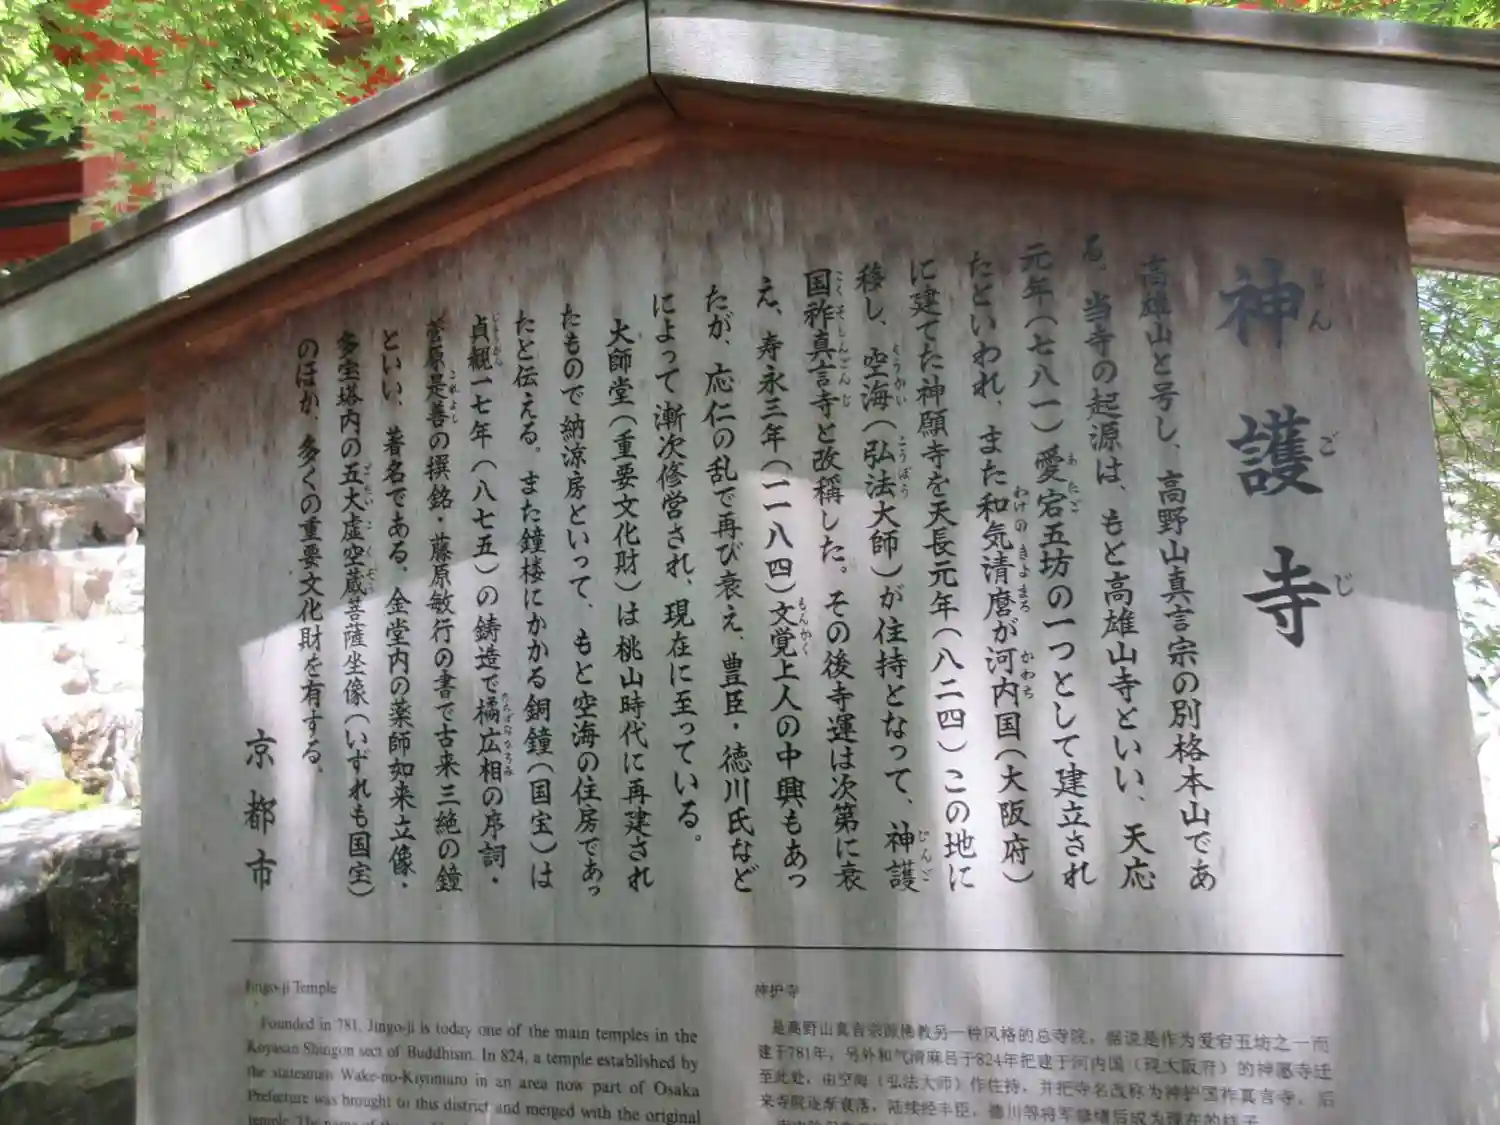 神護寺
高雄山と号し、高野山真言宗の別格本山であ
る。当寺の起源は、もと高雄山寺といい、天応
元年（七八一）愛宕五坊の一つとして建立され
たといわれ、また和気清麿が河内国（大阪府）
に建てた神願寺を天長元年（八二四）この地に
移し、空海（弘法大師）が住持となって、神護
国祚真言寺と改称した。その後寺運は次第に衰
え、寿永三年（一一八四）文覚上人の中興もあっ
たが、応仁の乱で再び衰え、豊臣・徳川氏など
によって漸次修営され、現在に至っている。
大師堂（重要文化財）は桃山時代に再建され
たもので納涼房といって、もと空海の住房であっ
たと伝える。また鐘楼にかかる銅鐘（国宝）は
貞観一七年（八七五）の鋳造で橘広相の序詞・
菅原是善の撰銘・藤原敏行の書で古来三絶の鐘
といい、著名である。金堂内の薬師如来立像・
多宝塔内の五大虚空蔵菩薩坐像（いずれも国宝）
のほか、多くの重要文化財を有する。
京都市
Jingo-ji Temple
Founded in 781, Jingo-ji is today one of the main temples in the
Koyasan Shingon sect of Buddhism. In 824, a temple established by
the statesman Wake-no-Kiyomaro in an area now part of Osaka
Prefecture was brought to this district and merged with the original
temple. The name of the
神护寺
是高野山真言宗派佛教另一种风格的总寺院。据说是作为爱宕五坊之一而
建于781年，另外和气清麻吕于824年把建于河内国（现大阪府）的神愿寺迁
至此处，由空海（弘法大师）作住持，并把寺名改称为神护国祚真言寺。后
来寺院逐渐衰落，陆续经丰臣，德川等将军修缮后成为现在的样子